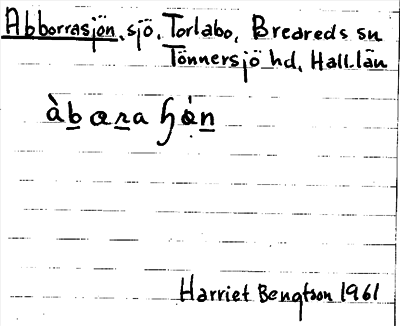 Abborrasjön, sjö, Torlabo, Breareds sn
Tönnersjö hd, Hall.län
Harriet Bengtson 1961